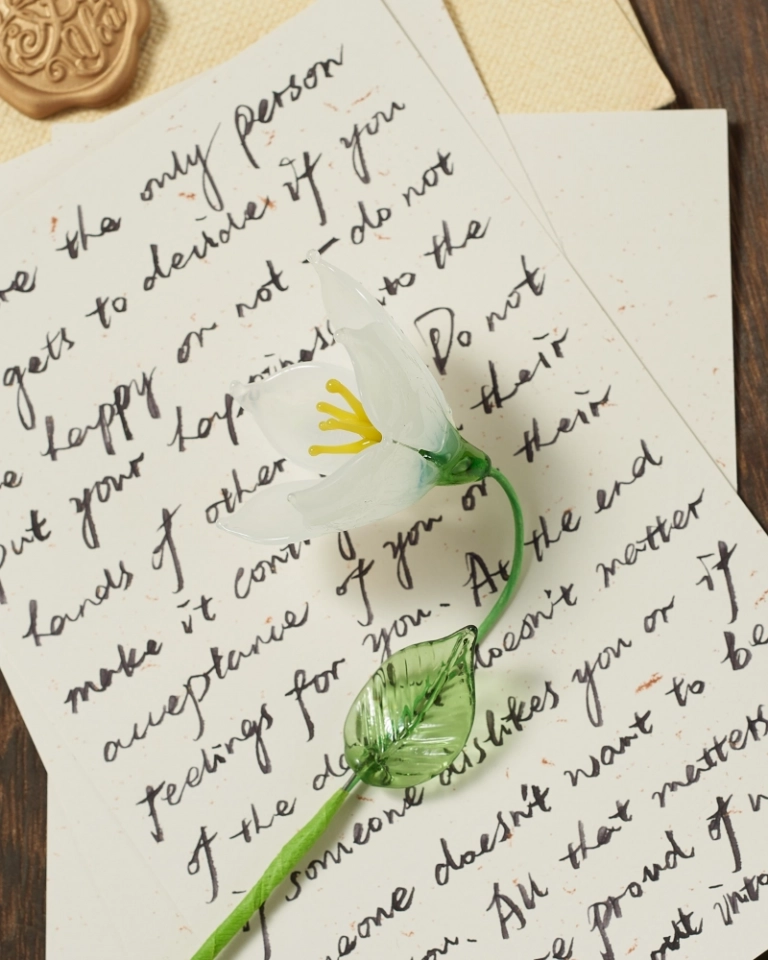 the only person
gets to decide if you
happy or not – do not
put your happiness into the
hands of other Do not
make it their
acceptance of you or their
feelings for you. At the end
of the doesn't matter
if someone dislikes you or if
someone doesn't want to be
you. All that matters
proud of